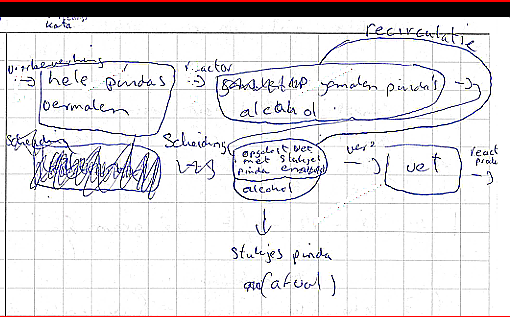 recirculatie
voorbewerking
reactor
hele pindas
vermalen
gemalen pinda's
alcohol
Scheiding
Scheiding
opgelost vet
met stukjes
pinda
alcohol
vet
react
prod
stukjes pinda
(afval)